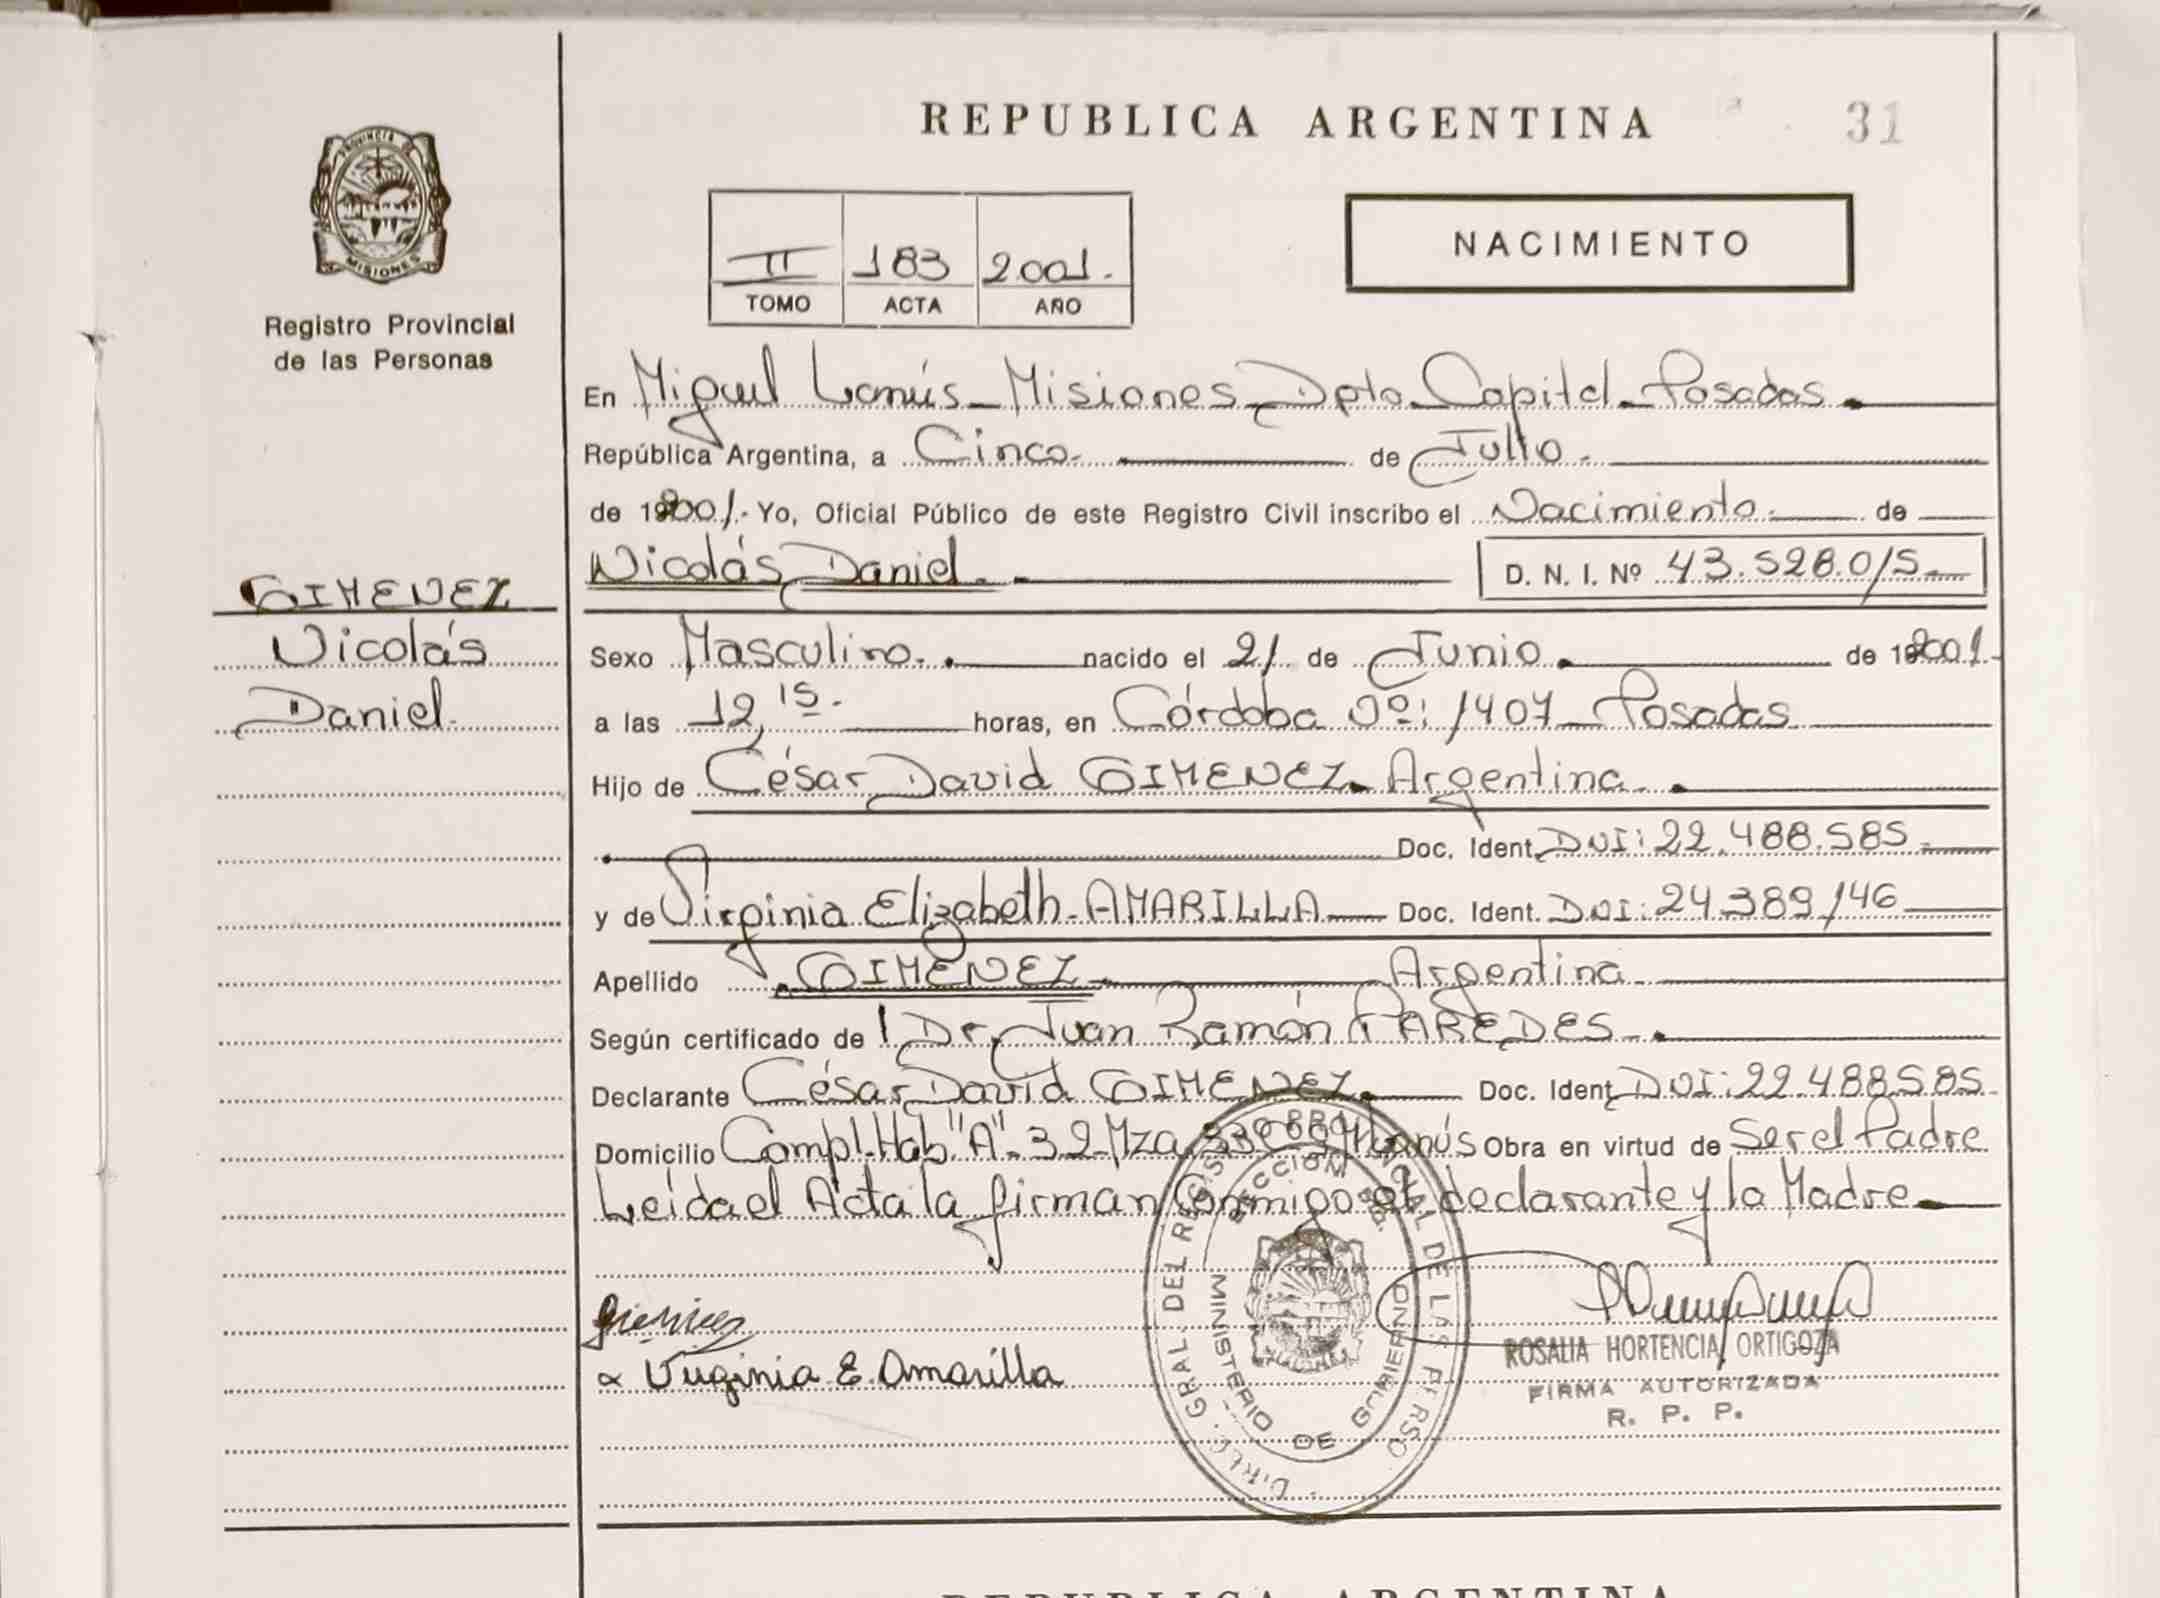 REPUBLICA ARGENTINA 31
PROVINCIA DE
MISIONES
Registro Provincial
de las Personas
II 183 2001.
TOMO ACTA AÑO
NACIMIENTO
En Miguel Lanús - Misiones - Dpto. Capital - Posadas.
República Argentina, a Cinco. de Julio.
de 2001. Yo, Oficial Público de este Registro Civil inscribo el Nacimiento. de
Nicolás Daniel. D. N. I. Nº 43.528.015.
GIMENEZ
Nicolás
Daniel.
Sexo Masculino. nacido el 21 de Junio. de 2001.
a las 12,15. horas, en Córdoba Nº: 1407 - Posadas
Hijo de César David GIMENEZ. Argentina.
Doc. Ident. DNI: 22.488.585.
y de Virginia Elizabeth AMARILLA Doc. Ident. DNI: 24.389.146
Apellido GIMENEZ. Argentina.
Según certificado de Dr. Juan Ramón PAREDES.
Declarante César David GIMENEZ. Doc. Ident. DNI: 22.488.585
Domicilio Compl. Hab. "A" 32 Mza. Lanús Obra en virtud de Ser el Padre
Leida el Acta la firman Conmigo el declarante y la Madre
Virginia E. Amarilla
ROSALIA HORTENCIA ORTIGOZA
FIRMA AUTORIZADA
R. P. P.
MINISTERIO DE GOBIERNO
REPUBLICA ARGENTINA